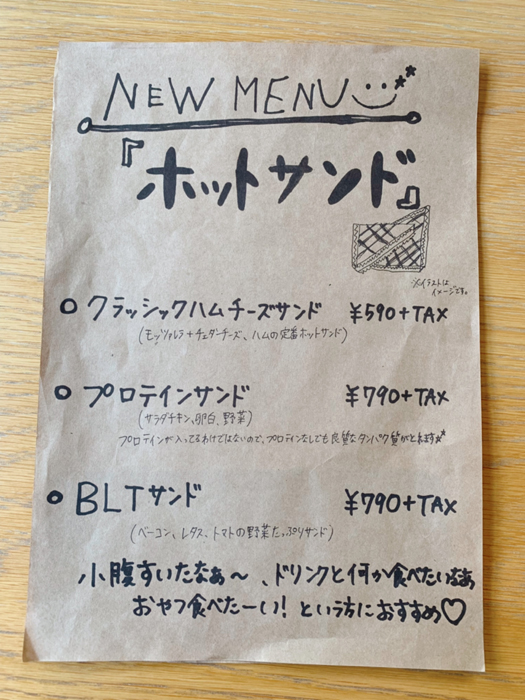 NEW MENU
『ホットサンド』
※イラストは
イメージです。
クラッシックハムチーズサンド ¥590+TAX
(モッツァレラ+チェダーチーズ、ハムの定番ホットサンド)
プロテインサンド ¥790+TAX
(サラダチキン、卵白、野菜)
プロテインが入ってるわけではないので、プロテインなしでも良質なタンパク質がとれます
BLTサンド ¥790+TAX
(ベーコン、レタス、トマトの野菜たっぷりサンド)
小腹すいたなぁ〜、ドリンクと何か食べたいなぁ
おやつ食べたーい!という方におすすめ♡